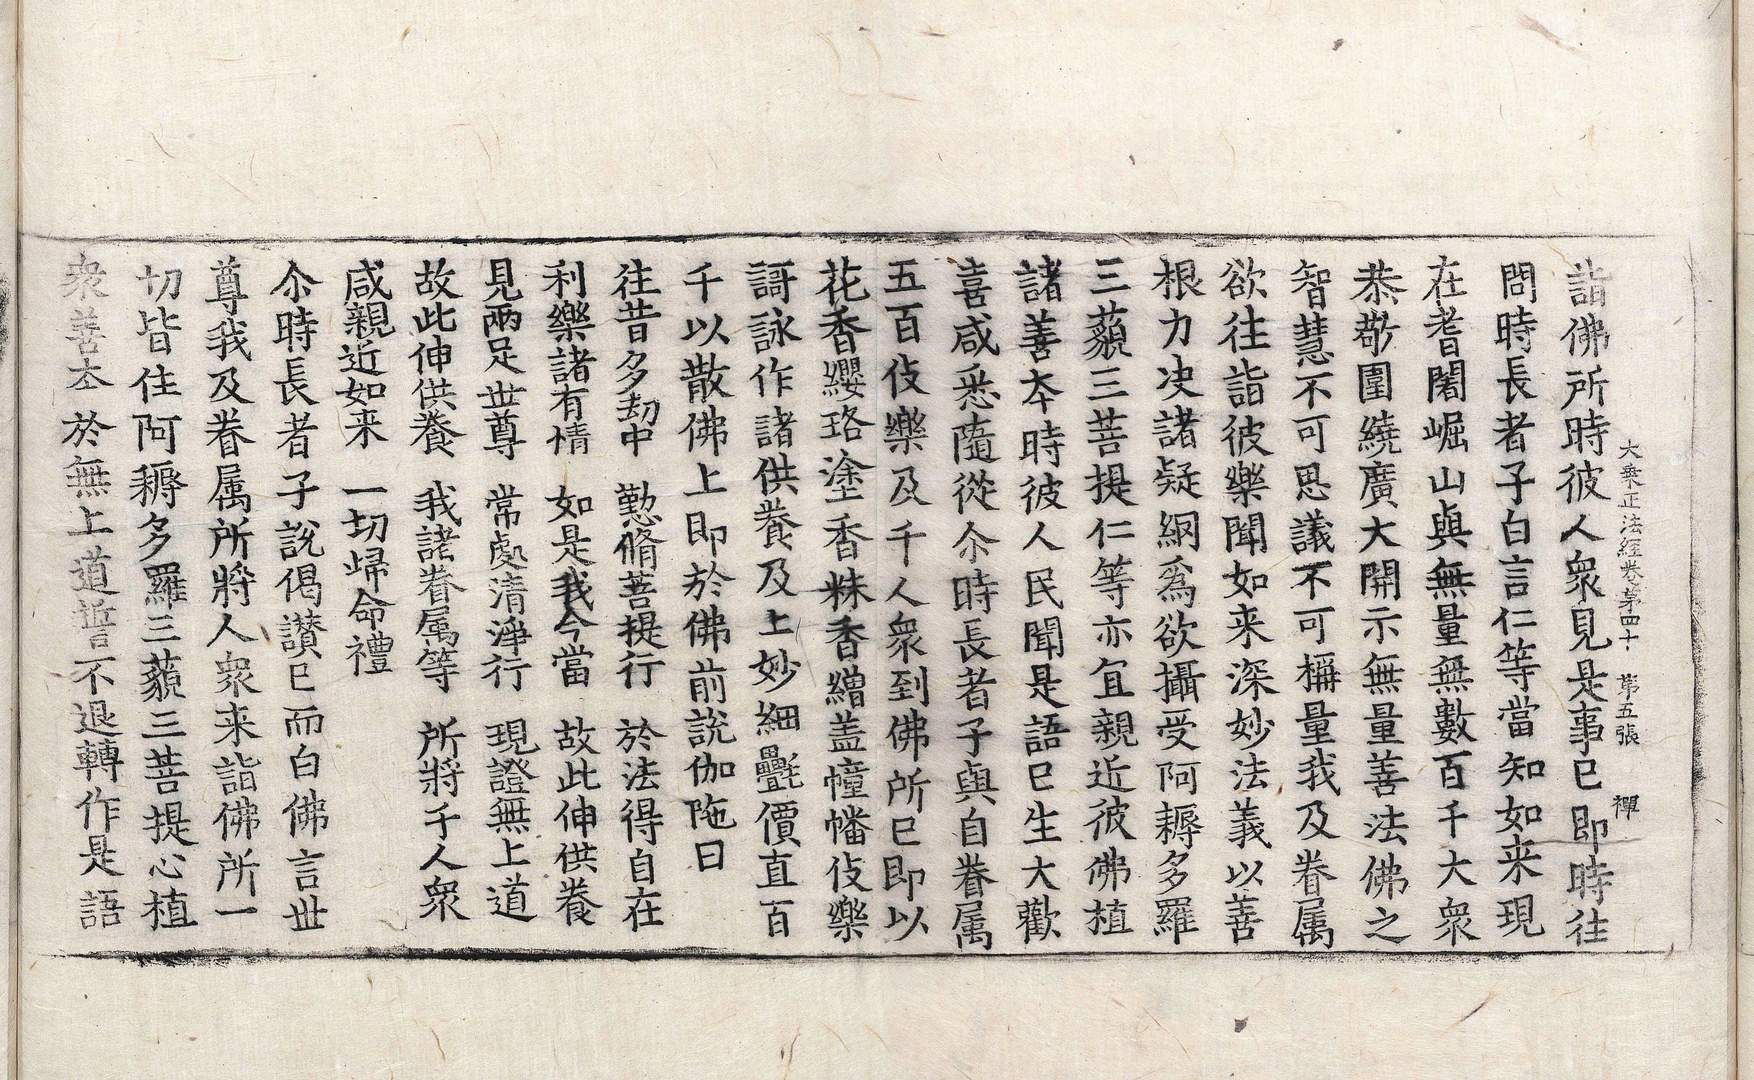 大乗正法經卷第四十　第五張　禪
詣佛所時彼人衆見是事已即時往
問時長者子白言仁等當知如来現
在耆闍崛山與無量無數百千大衆
恭敬圍繞廣大開示無量善法佛之
智慧不可思議不可稱量我及眷属
欲往詣彼樂聞如来深妙法義以善
根力决諸疑網爲欲攝受阿耨多羅
三藐三菩提仁等亦宜親近彼佛植
諸善本時彼人民聞是語已生大歡
喜咸悉隨從尒時長者子與自眷属
五百伎樂及千人衆到佛所已即以
花香纓珞塗香粖香繒盖幢幡伎樂
謌詠作諸供養及上妙細㲲價直百
千以散佛上即於佛前説伽陁曰
往昔多劫中　勤脩菩提行　於法得自在
利樂諸有情　如是我今當　故此伸供養
見兩足世尊　常處清淨行　現證無上道
故此伸供養　我諸眷属等　所將千人衆
咸親近如来　一切歸命禮
尒時長者子説偈讃已而白佛言世
尊我及眷属所將人衆来詣佛所一
切皆住阿耨多羅三藐三菩提心植
衆善本於無上道誓不退轉作是語